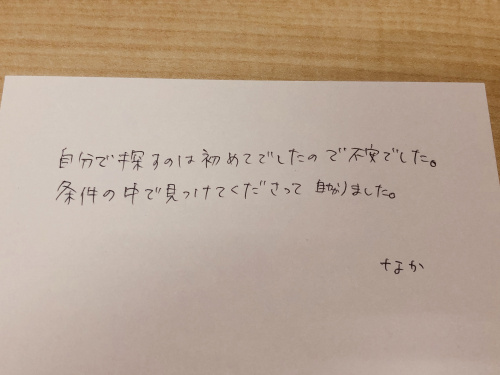 自分で探すのは初めてでしたので不安でした。
条件の中で見つけてくださって助かりました。
なか